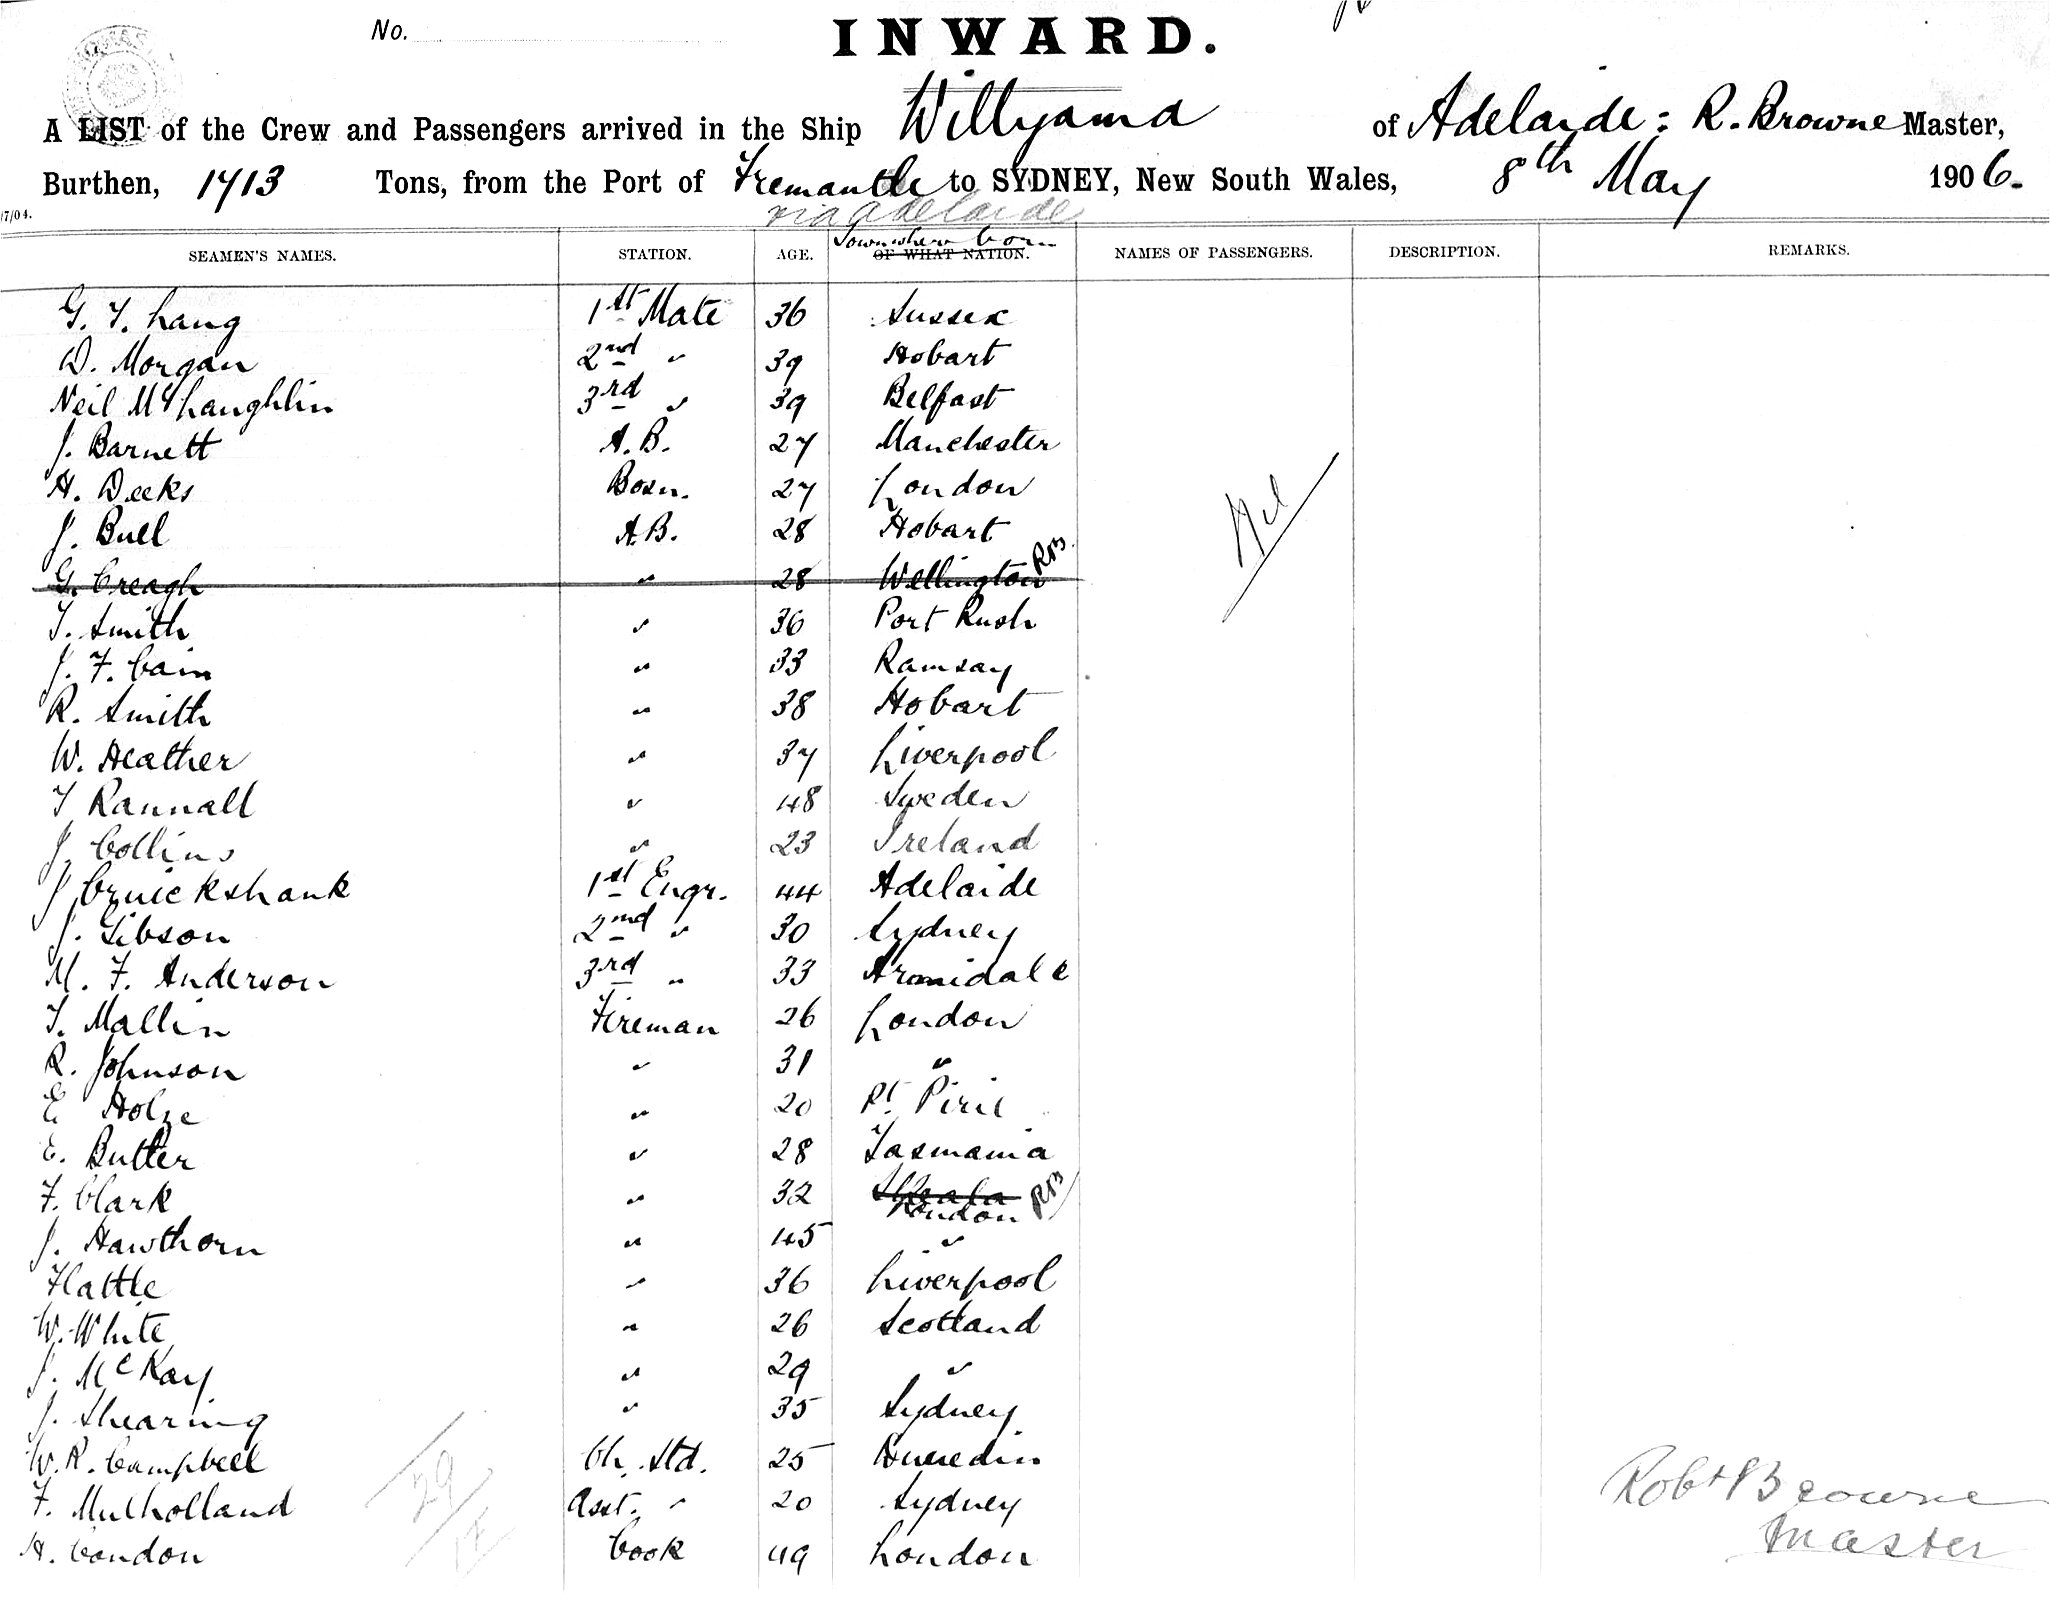 No.
INWARD.
A LIST of the Crew and Passengers arrived in the Ship Willyama of Adelaide: R. Browne Master,
Burthen, 1713 Tons, from the Port of Fremantle to SYDNEY, New South Wales, 8th May 1906.
7/04. via Adelaide
SEAMEN'S NAMES. STATION. AGE. Town where born OF WHAT NATION. NAMES OF PASSENGERS. DESCRIPTION. REMARKS.
G. F. Lang 1st Mate 36 Sussex
D. Morgan 2nd " 39 Hobart
Neil McLaughlin 3rd " 39 Belfast
J. Barnett A.B. 27 Manchester
H. Deeks Bosn. 27 London
J. Buel A.B. 28 Hobart
Nil
G. Creagh " 28 Wellington RB
T. Smith " 36 Port Rush
J. F. Cain " 33 Ramsay
R. Smith " 38 Hobart
W. Heather " 37 Liverpool
T Rannall " 48 Sweden
J. Collins " 23 Ireland
J Cruickshank 1st Engr. 44 Adelaide
J. Gibson 2nd " 30 Sydney
M. F. Anderson 3rd " 33 Armidale
T. Mallin Fireman 26 London
R. Johnson " 31 "
E Holze " 20 Pt. Pirie
E. Butler " 28 Tasmania
F. Clark " 32 London RB
J. Hawthorn " 45 "
Flattle " 36 Liverpool
W. White " 26 Scotland
J. McKay " 29 "
J. Shearing " 35 Sydney
W. R. Campbell Ch. Std. 25 Dunedin
F. Mulholland Asst. " 20 Sydney
H. Condon Cook 49 London
29
Robt Browne
Master